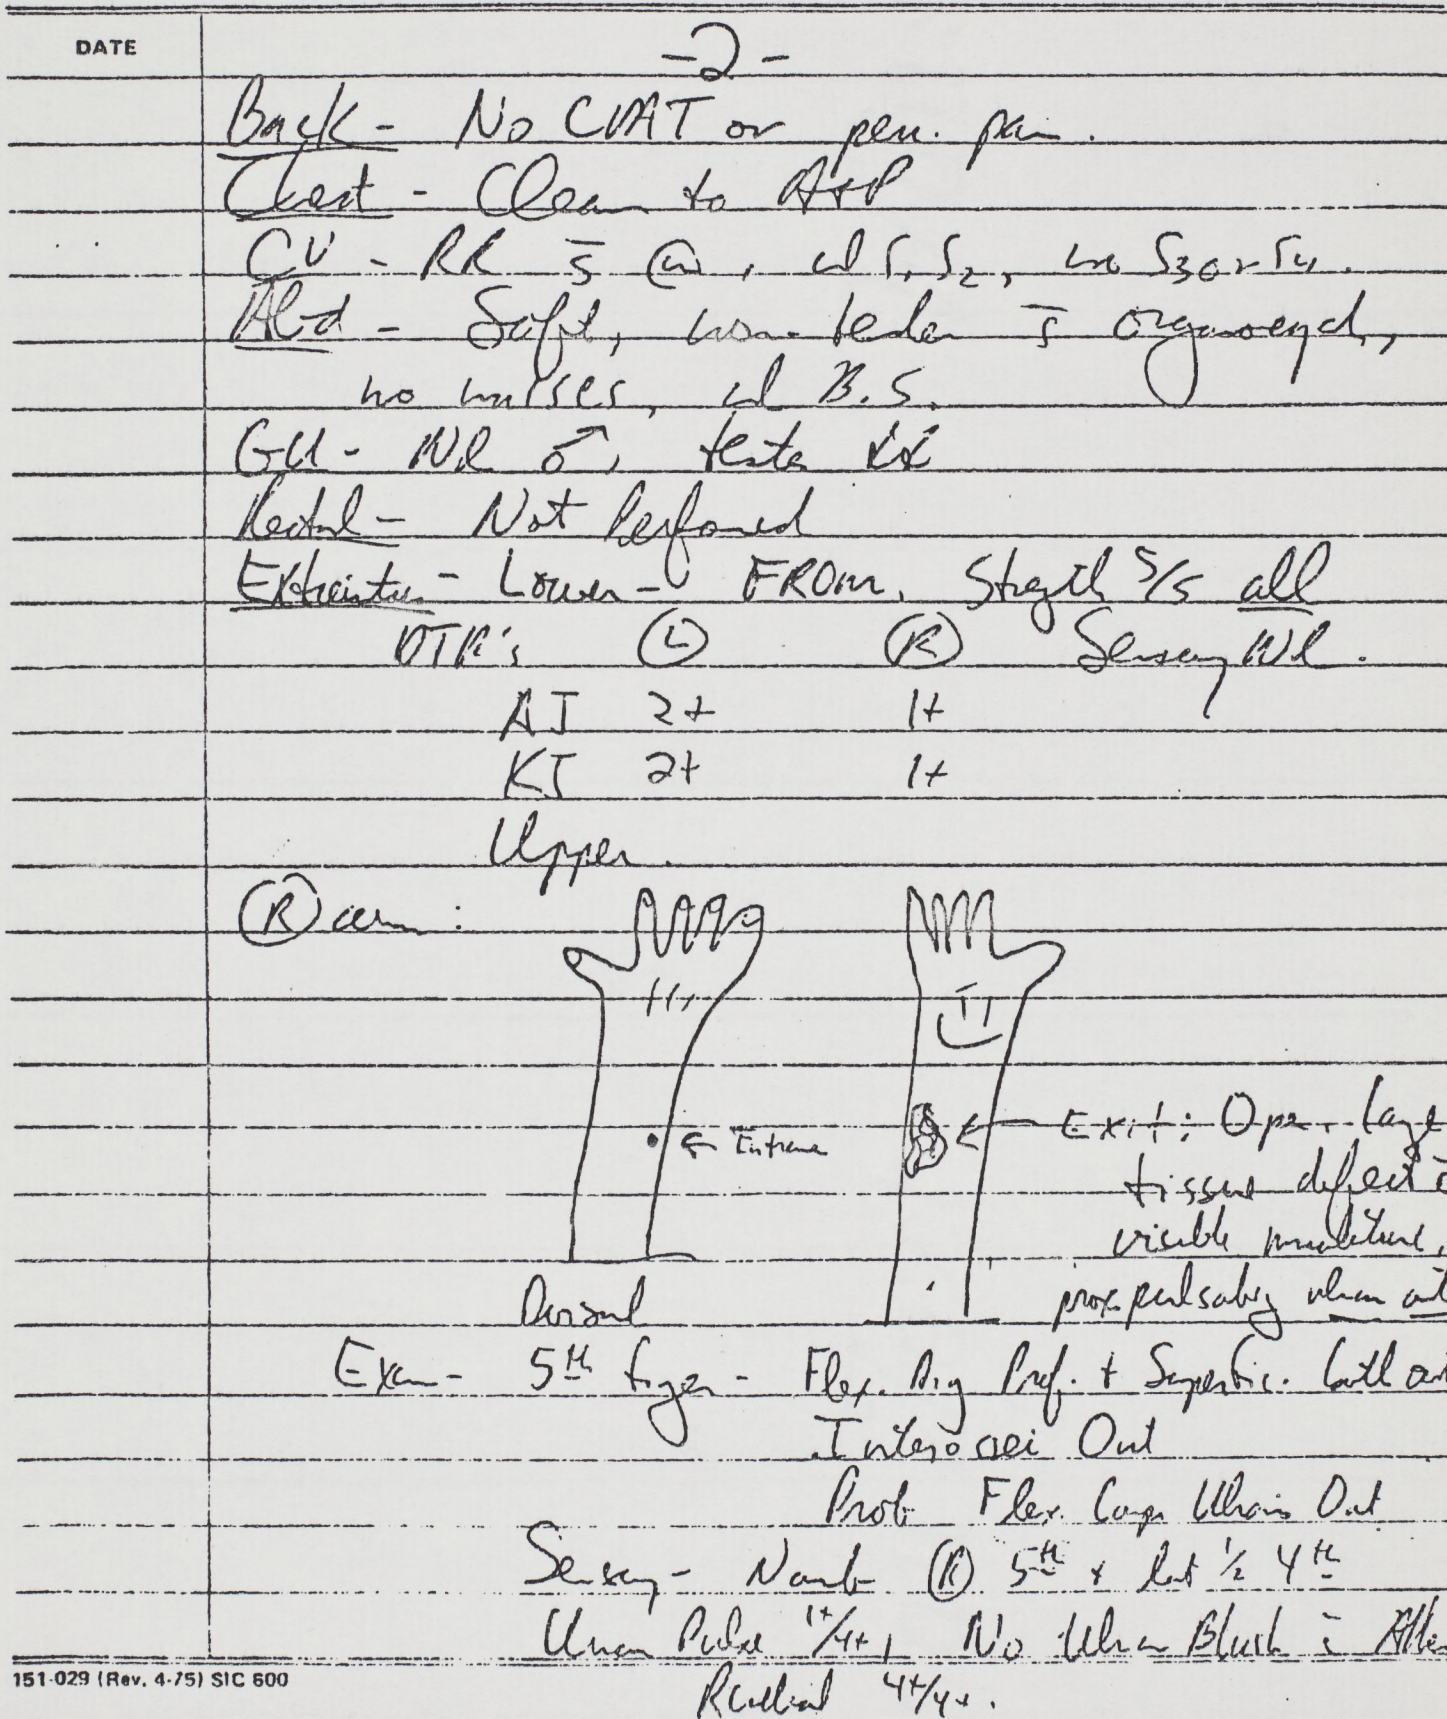 DATE
-2-
Back - No CVAT or pain.
Chest - Clear to A+P
CV - RR s̄ (m), nl S1 S2, no S3 or S4.
Abd - Soft, non-tender s̄
no masses, nl B.S.
GU - Nl ♂, testes
Rectal - Not Performed
Extremities - Lower - FROM. Strength 5/5 all
DTR's (L) (R) Sensory Nl.
AJ 2+ 1+
KJ 2+ 1+
Upper.
(R) arm:
← Entrance
← Exit; Open large
tissue defect c̄
visible musculature,
prox. pulsating ulnar
Dorsal
Exam - 5th finger - Flex. Dig Prof. + Superfic. both out
Interossei Out
Prob Flex. Carp Ulnaris Out
Sensory - Numb (R) 5th + lat ½ 4th
Ulnar Pulse 1+/4+, No Ulnar Blush c̄ Allen
151-029 (Rev. 4-75) SIC 600
Radial 4+/4+.